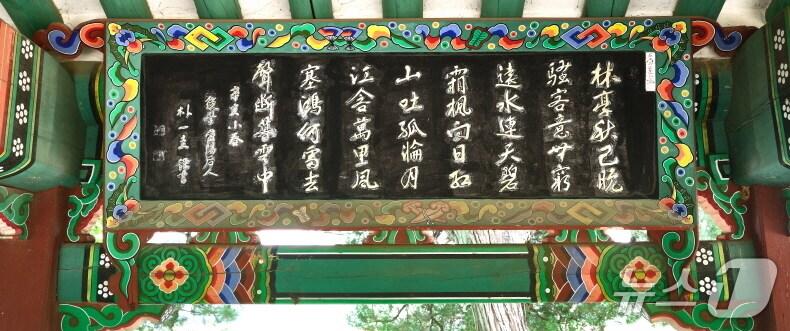 林亭秋已晩
騷客意無窮
遠水連天碧
霜楓向日紅
山吐孤輪月
江含萬里風
塞鴻何處去
聲斷暮雲中
小春
人
朴一
뉴스1